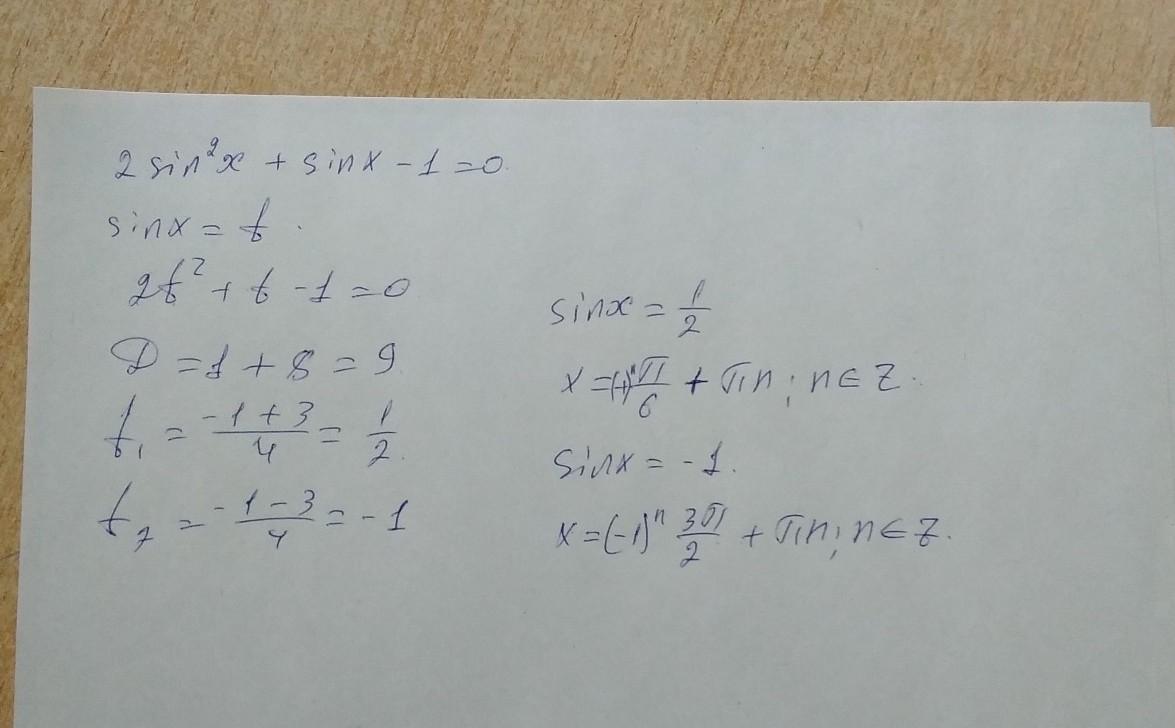 2 sin²x + sinx − 1 = 0.
sinx = t.
2t² + t − 1 = 0
D = 1 + 8 = 9.
t₁ = (−1 + 3)/4 = 1/2.
t₂ = (−1 − 3)/4 = −1
sinx = 1/2
x = (−1)ⁿ π/6 + πn; n ∈ Z.
sinx = −1.
x = (−1)ⁿ 3π/2 + πn; n ∈ Z.